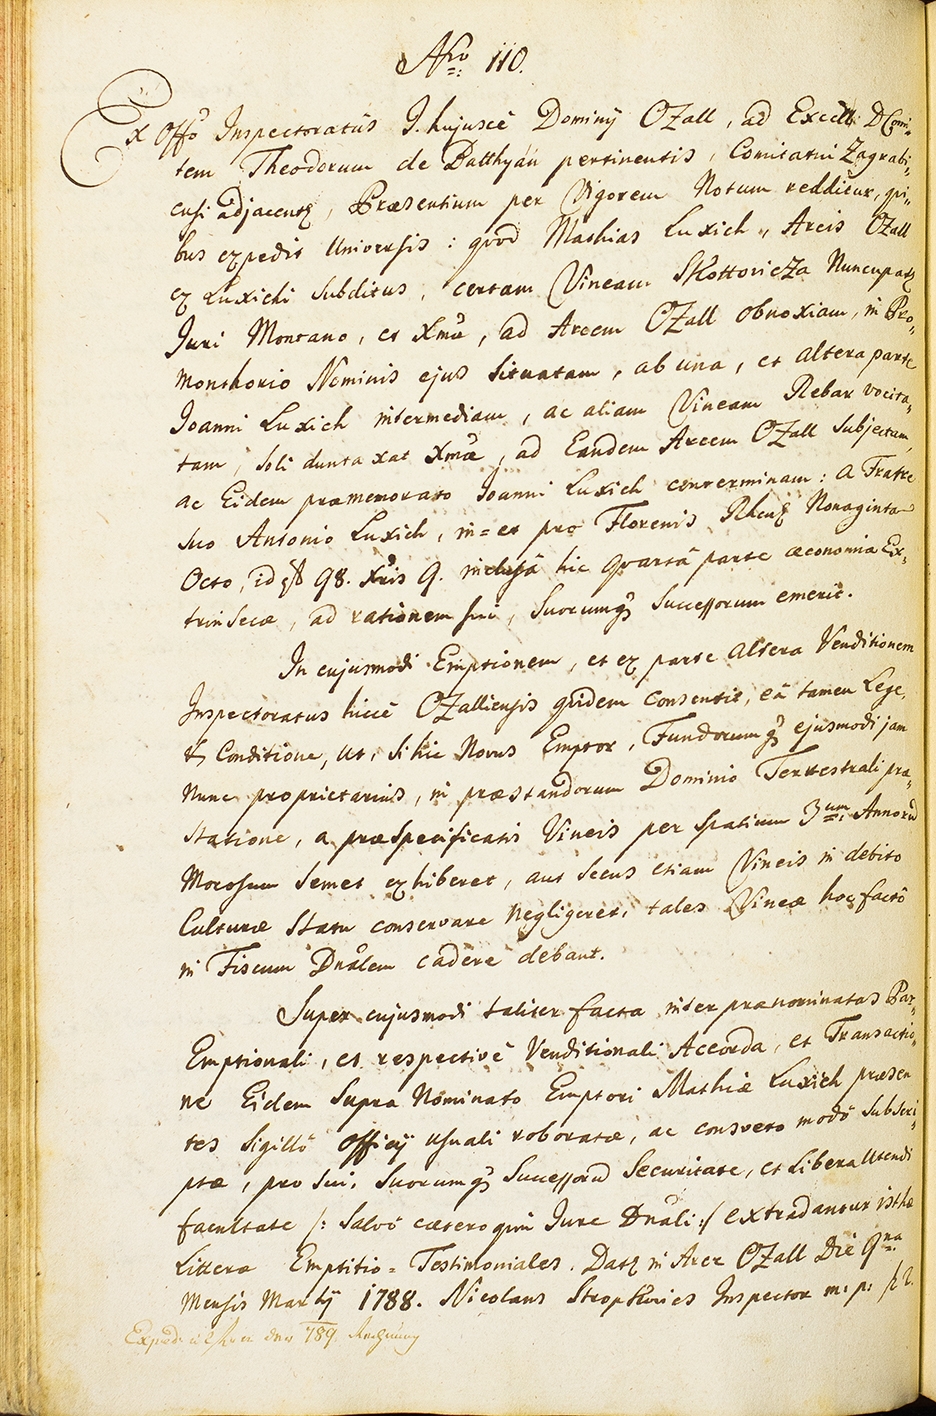 Nro 110.
Ex Offo Inspectoratûs I. hujusce Dominÿ OZall, ad Excell: D Comi-
tem Theodorum de Batthÿan pertinentis, Comitatui Zagrabi-
ensi adjacentis, Præsentium per Vigorem Notum redditur, qvi-
bus expedit Universis: qvod Mathias Luxich, Arcis OZall
ex Luxichi Subditus, certam Vineam SKottoricZa Nuncupatam
Juri Montano, et Xmæ, ad Arcem OZall obnoxiam, in Pro-
monthorio Nominis ejus Situatam, ab una, et altera parte
Joanni Luxich intermediam, ac aliam Vineam Rebar vocita-
tam, Soli duntaxat Xmæ, ad Eandem Arcem OZall Subjectam,
ac Eidem præmemorato Joanni Luxich conterminam: a Fratre
suo Antonio Luxich, in= et pro Florenis Rhens Nonaginta
Octo, id est 98. Xris 9. inclusâ hic qvartâ parte æconomiæ Ex-
trinsecæ, ad rationem sui, Suorumq Successorum emerit.
In cujusmodi Emptionem, et ex parte altera Venditionem
Inspectoratus hicce OZalliensis qvidem consentit, eâ tamen Lege,
& Conditione, ut, Si hic Novus Emptor, Fundorumq ejusmodi jam
Nunc proprietarius, in præstandorum Dominio Terrestrali præ-
statione, a præspecificatis Vineis per Spatium 3um Annorū
Morosum Semet exhiberet, aut Secus etiam Vineis in debito
Culturæ Statu conservare negligeret, tales Vineæ hoc facto
in Fiscum Dnālem cadere debant.
Super cujusmodi taliter facta inter prænominatas Par-
Emptionali, et respectivè Venditionali Accorda, et Transactio-
ne Eidem Supra Nominato Emptori Mathiæ Luxich præsen
tes Sigillô Officÿ usuali roboratæ, ac consveto modô Subscri-
ptæ, pro Sui, Suorumq Successorū Securitate, et Libera Utendi
facultate /: Salvô cæteroqvin Jure Dnāli :/ extradantur isthæ
Litteræ Emptitio= Testimoniales. Dat in Arce OZall Die 9na
Mensis Martÿ 1788. Nicolaus Inspector m: p:
der 789